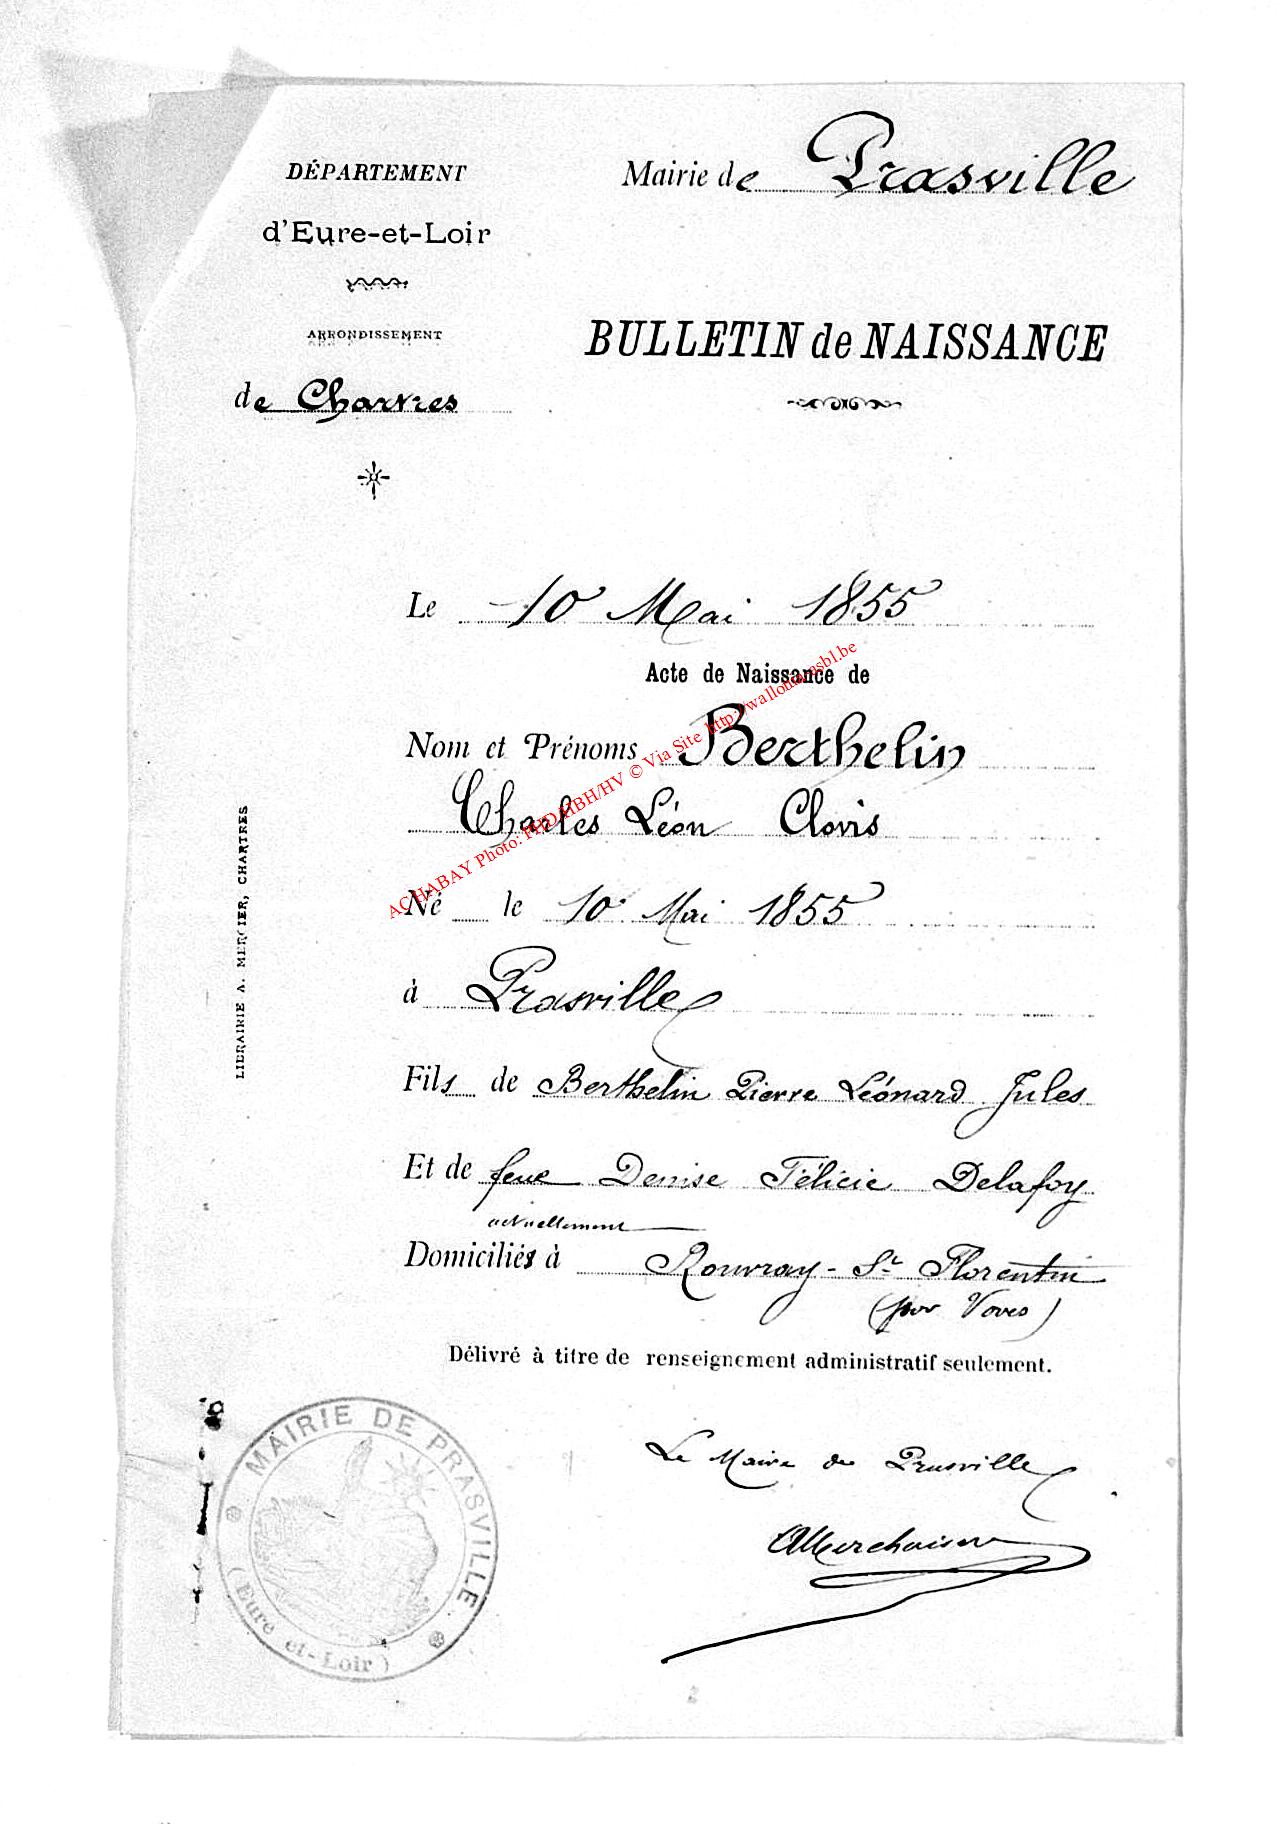 DÉPARTEMENT
d'Eure-et-Loir
ARRONDISSEMENT
de Chartres
Mairie de Prasville
BULLETIN de NAISSANCE
Le 10 Mai 1855
Acte de Naissance de
Nom et Prénoms Berthelin
Charles Léon Clovis
Né le 10 Mai 1855
à Prasville
Fils de Berthelin Pierre Léonard Jules
Et de feue Denise Félicie Delafoy
actuellement
Domiciliés à Rouvray-St Florentin
(par Voves)
Délivré à titre de renseignement administratif seulement.
Le Maire de Prasville
LIBRAIRIE A. MERCIER, CHARTRES
MAIRIE DE PRASVILLE
(Eure et-Loir)
ACHABAY Photo: PHD/HBH/HV © Via Site http://wallonia-asbl.be